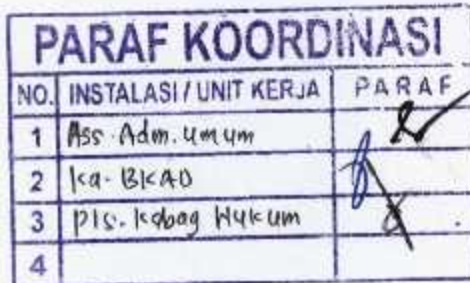 PARAF KOORDINASI
NO. INSTALASI / UNIT KERJA PARAF
1 Ass. Adm. Umum
2 Ka. BKAD
3 Pls. Kabag Hukum
4